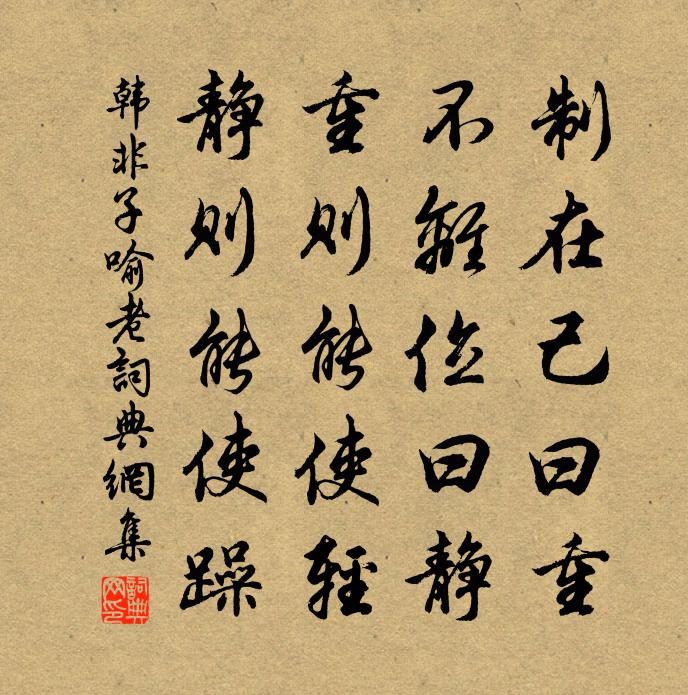 制在己曰重
不離位曰静
重則能使輕
静則能使躁
韩非子喻老詞典網集
詞典网印